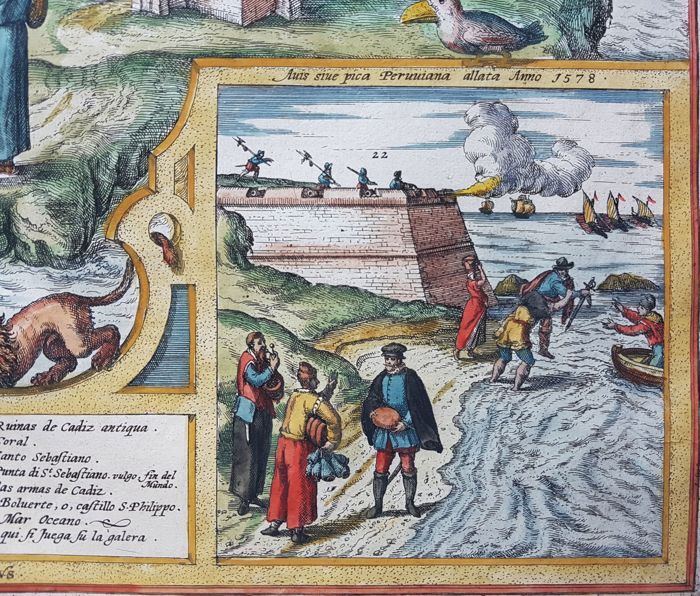 Auis siue pica Peruuiana allata Anno 1578.
22
Ruinas de Cadiz antiqua.
Coral.
Santo Sebastiano.
Punta di St. Sebastiano. vulgo fin del
Mundo.
las armas de Cadiz.
Boluerte, o, castillo S. Philippo.
Mar Oceano.
qui si juega sù la galera.